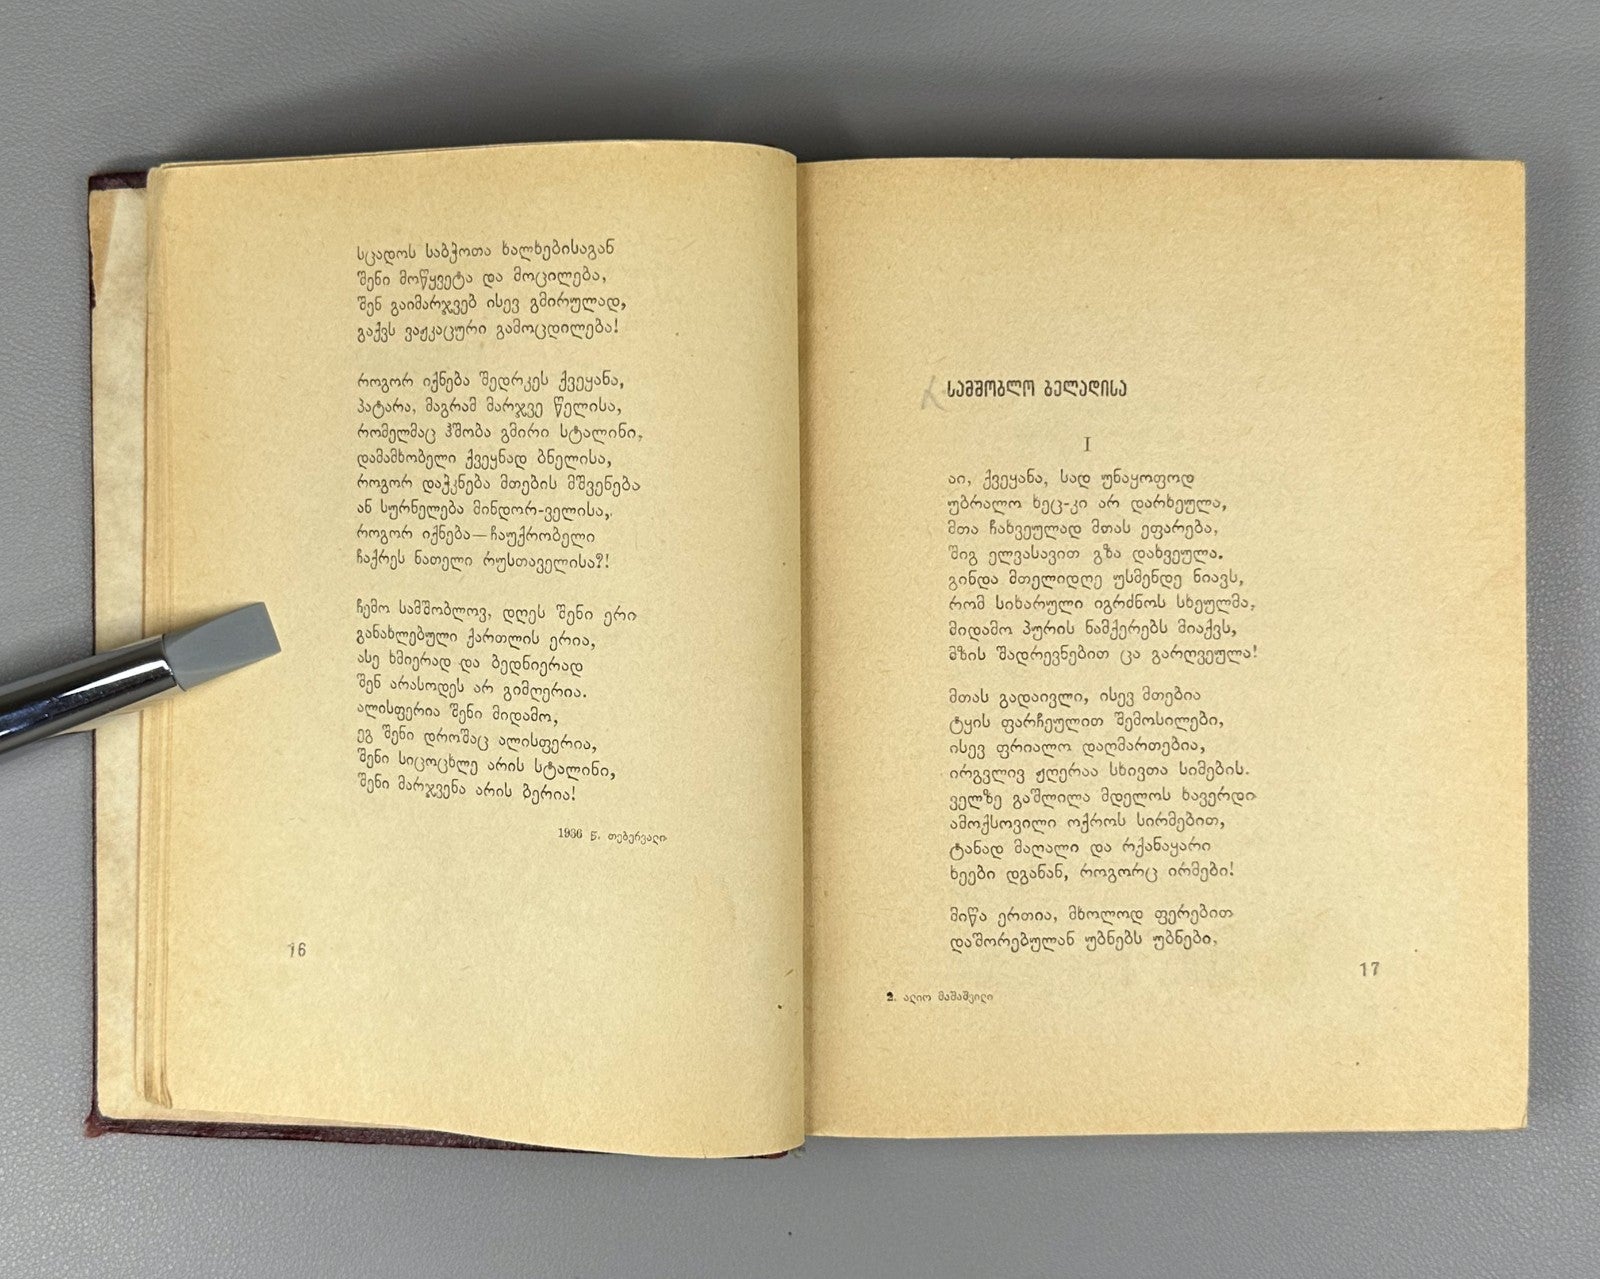 სცადოს საბჭოთა ხალხებისაგან
შენი მოწყვეტა და მოცილება,
შენ გაიმარჯვებ ისევ გმირულად,
გაქვს ვაჟკაცური გამოცდილება!
როგორ იქნება შედრკეს ქვეყანა,
პატარა, მაგრამ მარჯვე წელისა,
რომელმაც ჰშობა გმირი სტალინი,
დამამხობელი ქვეყნად ბნელისა,
როგორ დაჭკნება მთების მშვენება
ან სურნელება მინდორ-ველისა,
როგორ იქნება—ჩაუქრობელი
ჩაქრეს ნათელი რუსთაველისა?!
ჩემო სამშობლოვ, დღეს შენი ერი
განახლებული ქართლის ერია,
ასე ხმიერად და ბედნიერად
შენ არასოდეს არ გიმღერია.
ალისფერია შენი მიდამო,
ეგ შენი დროშაც ალისფერია,
შენი სიცოცხლე არის სტალინი,
შენი მარჯვენა არის ბერია!
1936 წ. თებერვალი
16
სამშობლო ბელადისა
I
აი, ქვეყანა, სად უნაყოფოდ
უბრალო ხეც-კი არ დარხეულა,
მთა ჩახვეულად მთას ეფარება,
შიგ ელვასავით გზა დახვეულა.
გინდა მთელიდღე უსმენდე ნიავს,
რომ სიხარული იგრძნოს სხეულმა,
მიდამო პურის ნამქერებს მიაქვს,
მზის შადრევნებით ცა გარღვეულა!
მთას გადაივლი, ისევ მთებია
ტყის ფარჩეულით შემოსილები,
ისევ ფრიალო დაღმართებია,
ირგვლივ ჟღერაა სხივთა სიმების.
ველზე გაშლილა მდელოს ხავერდი
ამოქსოვილი ოქროს სირმებით,
ტანად მაღალი და რქანაყარი
ხეები დგანან, როგორც ირმები!
მიწა ერთია, მხოლოდ ფერებით
დაშორებულან უბნებს უბნები,
17
2. ალიო მაშაშვილი